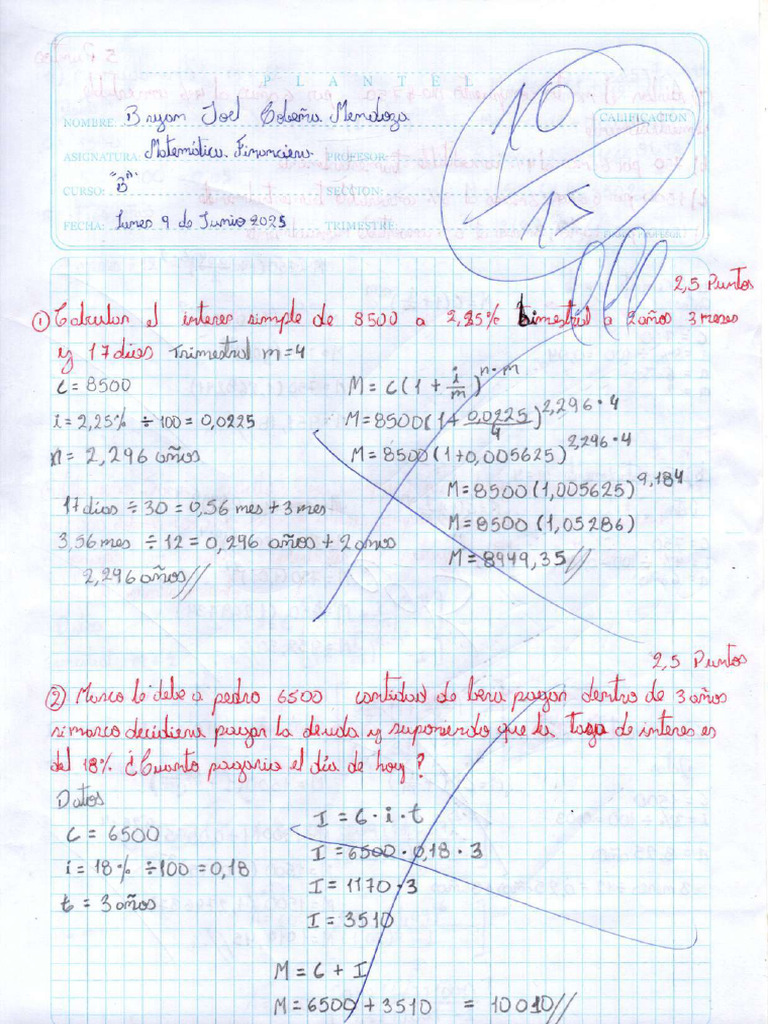 PLANTEL
NOMBRE: Bryan Joel Cobeña Mendoza
CALIFICACIÓN
10
15
ASIGNATURA: Matemática Financiera PROFESOR:
CURSO: "B" SECCIÓN:
FECHA: Lunes 9 de Junio 2025 TRIMESTRE
2,5 Puntos
① Calcular el interes simple de 8500 a 2,25% trimestral a 2 años 3 meses
y 17 dias Trimestral m=4
C = 8500
M = C(1 + i/m)^n·m
i = 2,25% ÷ 100 = 0,0225
M = 8500(1+0,0225/4)^2,296·4
n = 2,296 años
M = 8500(1+0,005625)^2,296·4
M = 8500(1,005625)^9,184
17 dias ÷ 30 = 0,56 mes + 3 mes
M = 8500(1,05286)
3,56 mes ÷ 12 = 0,296 años + 2 anos
M = 8949,35//
2,296 años//
2,5 Puntos
② Marco le debe a pedro 6500 cantidad de bera pagar dentro de 3 años
si marco decidiera pagar la deuda y suponiendo que la tasa de interes es
del 18% ¿Cuanto pagaria el día de hoy?
Datos
C = 6500
I = C · i · t
i = 18% ÷100 = 0,18
I = 6500 · 0,18 · 3
t = 3 años
I = 1170 · 3
I = 3510
M = C + I
M = 6500 + 3510 = 10010//